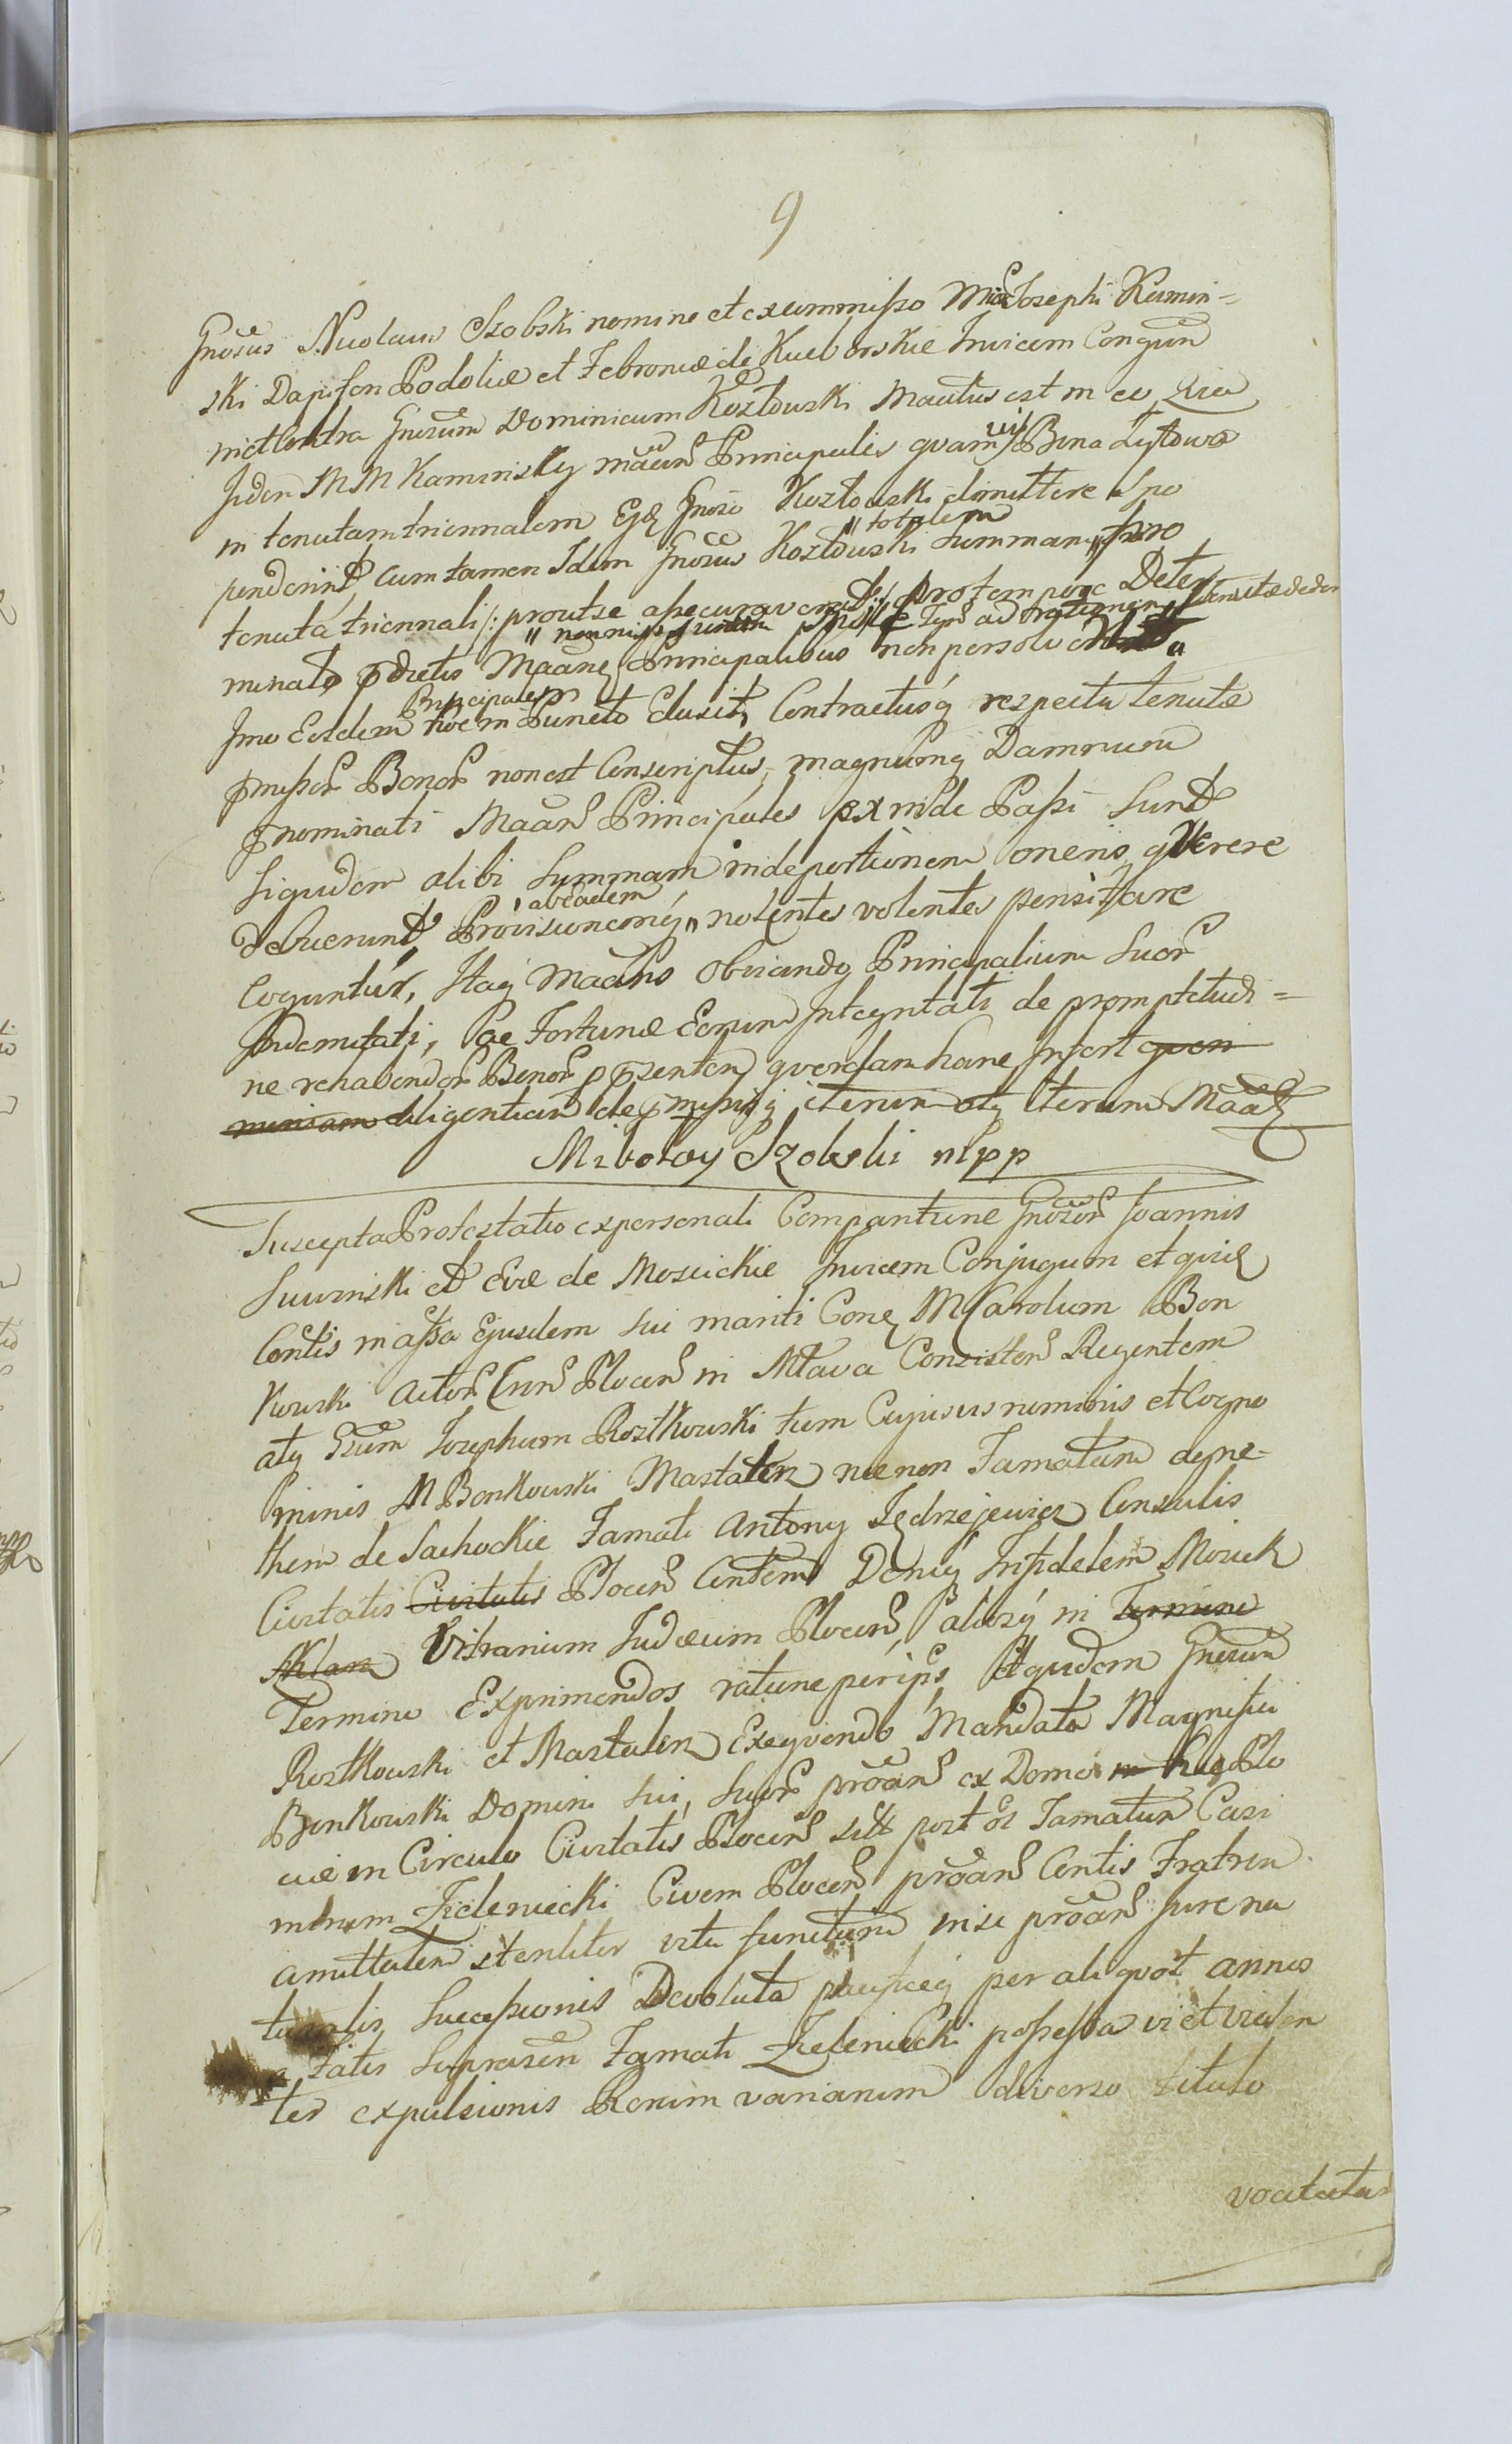 9
Gnosus Nicolaus Szobski nomine et ex commisso Mcor Josephi Kamin=
ski Dapiferi Podoliæ et Febroniæ de Kuczborskie Invicem Conjum
nict Contra Gnosum Dominicum Kozłowski Mactus est in eo Quia
Iidem MM Kaminskÿ mãan Principales qvamvis Bona Żytowo
in tenutam triennalem Ejq Gnoso Kozłowski dimittere spo
ponderint, cum tamen Idem Gnosus Kozłowski summam "totalem" pro
tenuta triennali /: prout se assecuraverat :/ pro tempore Deter
minato pdictis Mãane Principalibus non persolverit "
"non nisi ad rationem tenutæ dedit
Imo Eosdem Principales hoc in Puncto Elusit, Contractusq respectu tenutæ
pmissor Bonor non est Conscriptus, magnumq Damnum
pnominati Mãan Principales exinde Passi sunt
siquidem alibi summam in deportionem oneris qværere
debuerunt, Provisionemq "ab eadem" nolentes volentes pensitare
coguntur, Itaq Maans obviando Principalium suor
Indemnitati, ac Fortunæ Eorum Integritati de promptitudi=
ne rehabendor Bonor pprzentem qverelam hanc Infert qven
moniam diligentiam de pmissisq iterum atq iterum Mãatq
Mikołay Szobski mpp
Suscepta Protestatio ex personali Comparitione Gnosor Joannis
Suwinski et Evæ de Mosuickie Invicem Conjugum et qvid
Contis in assa Ejusdem sui mariti Cone M Carolum Bon
kowski Actor Cnr Plocen in Mława Consisten Regentem
atq Gsum Josephum Rostkowski tum Cujusvis nominis et Cogno
minis M Bonkowski Mastalerz necnon Famatam Agne=
them de Lachockie Famati Antony Jędrzejewicz Consulis
Civitatis Civitatis Plocen Contem Deniq Infidelem Moszek
Szklarz Vitranium Judæum Plocen, aliosq in Termino
Termino Exprimendos ratione perips Et quidem Gnosum
Rostkowski et Mastalerz Exeqvendo Mandata Magnifici
Bonkowski Domini sui, suor proan ex Domo in Plo
ciæ in Circulo Civitatis Plocen sita post os Famatum Casi
mirum Zieleniecki Civem Plocen proan Contis Fratrem
amittalem steriliter vita functum in se proan Jure na
turalis Successionis Devoluta pacificeq per aliqvot annos
a Fatis suprascen Famati Zieleniecki possessa vi et violen
ter expulsionis Rerum variarum diverso titulo
vocitatar